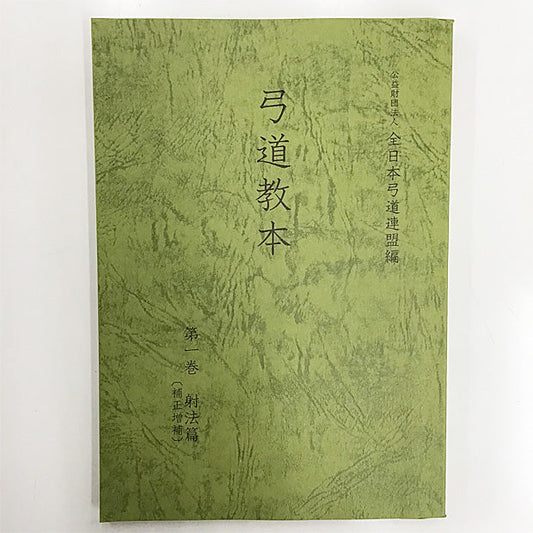 公益財団法人 全日本弓道連盟編
弓道教本
第一巻 射法篇
（補正増補）